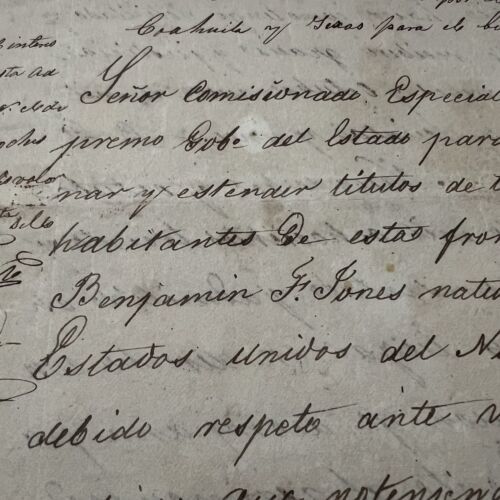 Coahuila y Texas para el
Señor Comisionado Especial
premo Gobe. del Estado para
nar y estender titulos de
habitantes De estas fron
Benjamin F. Jones natu
Estados unidos del N
debido respeto ante
que notenien